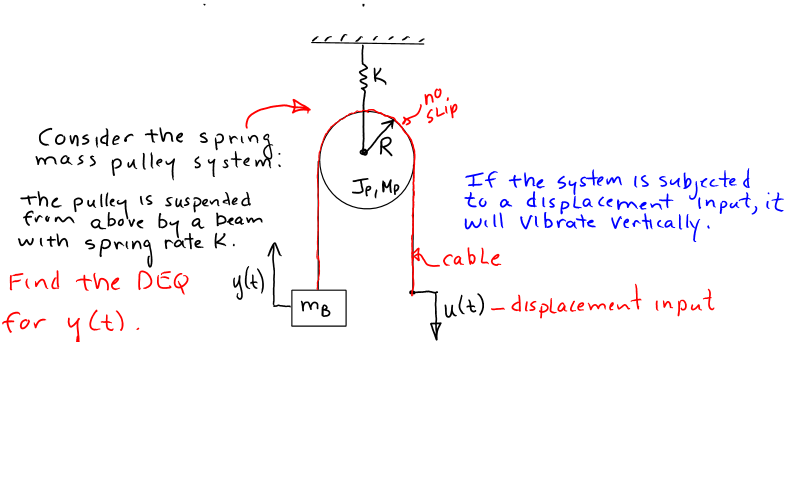 K
no
slip
Consider the spring
mass pulley system:
R
Jp, Mp
the pulley is suspended
from above by a beam
with spring rate K.
If the system is subjected
to a displacement input, it
will vibrate vertically.
cable
Find the DEQ
for y(t).
y(t)
mB
u(t) – displacement input